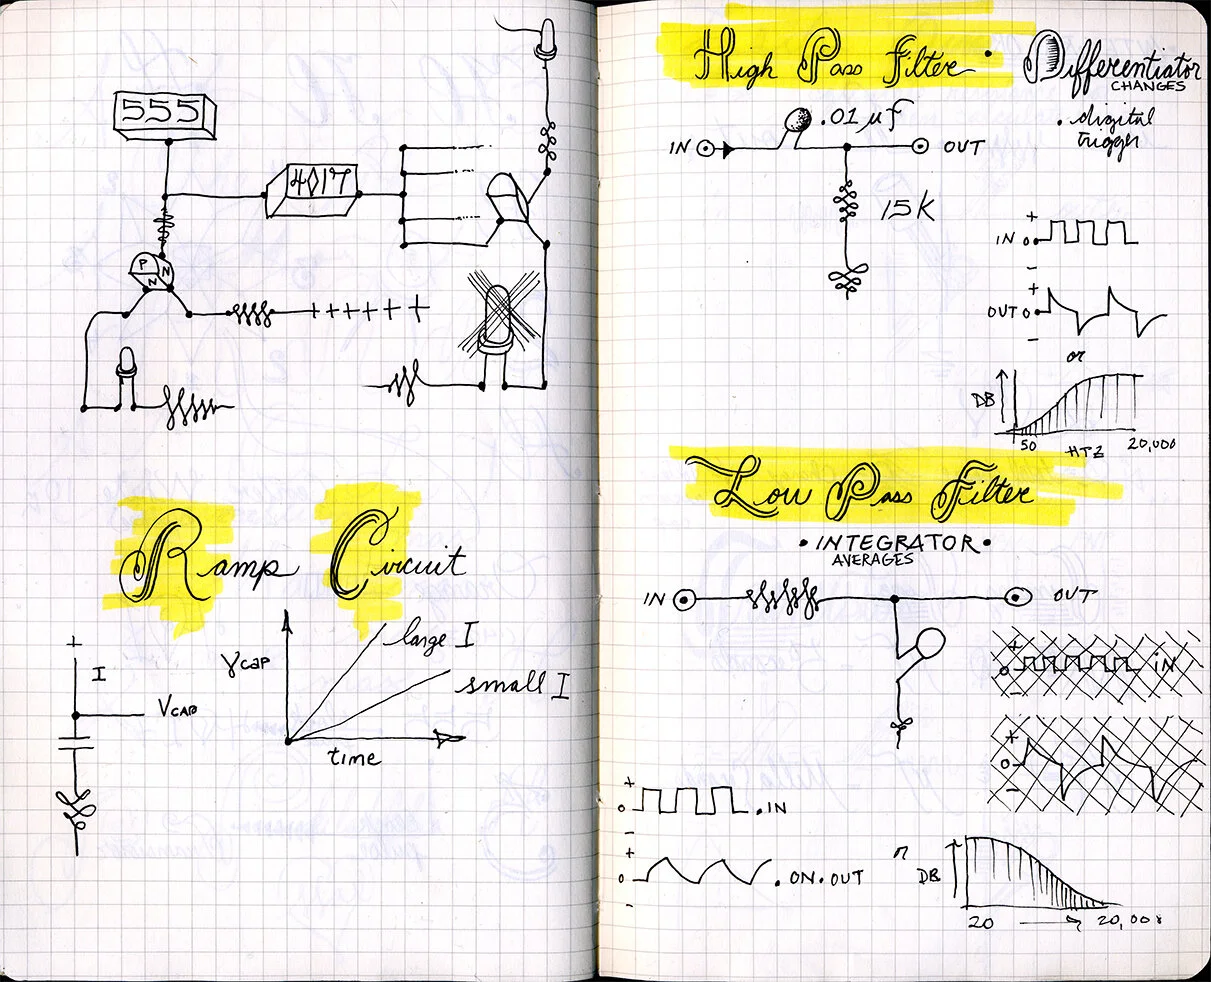 555
4017
P
N
N
+ + + + + +
Ramp Circuit
+
I
VCAP
VCAP
large I
small I
time
High Pass Filter • Differentiator
CHANGES
• digital
trigger
.01 µf
IN
OUT
15K
+
IN 0
–
+
OUT 0
–
or
DB
50
HTZ
20,000
Low Pass Filter
• INTEGRATOR •
AVERAGES
IN
OUT
+
0
IN
–
+
0
–
+
0
• IN
–
+
0
• ON • OUT
–
or
DB
20
20,000